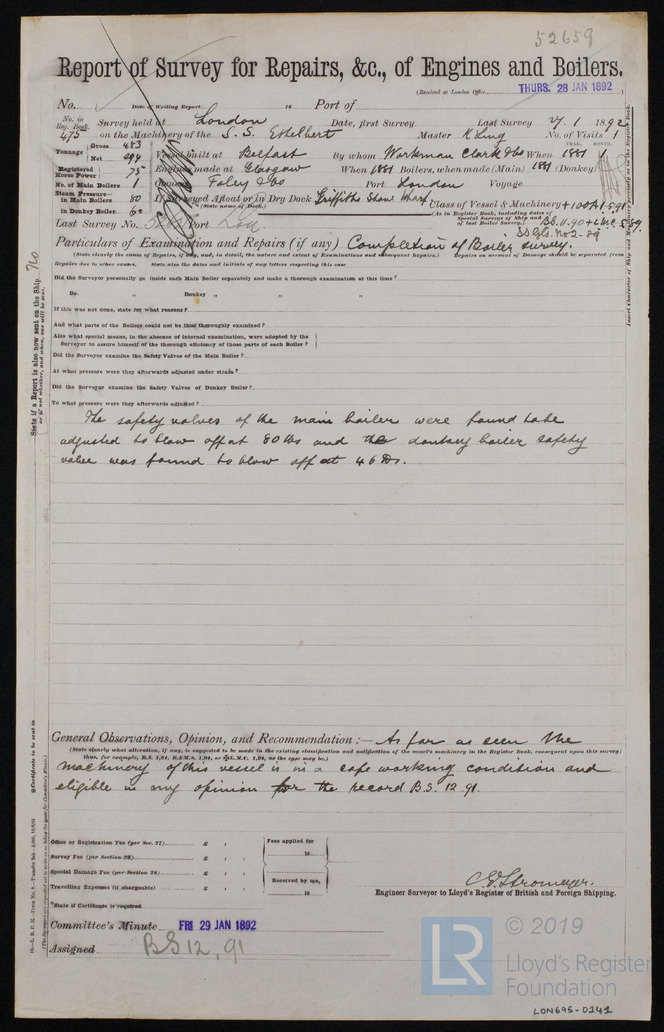 52659
Report of Survey for Repairs, &c., of Engines and Boilers.
(Received at London Office THURS. 28 JAN 1892)
No. Date of Writing Report 18 Port of
No. in Reg. Book. Survey held at London Date, first Survey Last Survey 27. 1 1892
475 on the Machinery of the S.S. Ethelbert Master K Ling No. of Visits 1
Tonnage Gross 483 Net 294 Vessel built at Belfast By whom Workman Clark & Co When 1881 YEAR. MONTH. 1
Registered Horse Power 75 Engines made at Glasgow When 1881 Boilers, when made (Main) 1881 (Donkey)
No. of Main Boilers 1 Owners Foley & Co Port London Voyage
Steam Pressure in Main Boilers 80 If Surveyed Afloat or in Dry Dock Griffiths Shaw Wharf
(State name of Dock.) Class of Vessel & Machinery +100A1 5.91
in Donkey Boiler 60 (As in Register Book, including dates of Special Surveys of Ship and of last Boiler Survey.) B.S. 11.90 + LMC 5.89
Last Survey No. Port Lon SS Gls. No2-89
Particulars of Examination and Repairs (if any) Completion of Boiler survey.
(State clearly the cause of Repairs, if any, and, in detail, the nature and extent of Examinations and subsequent Repairs.) Repairs on account of Damage should be separated from
Repairs due to other causes. State also the dates and initials of any letters respecting this case
Did the Surveyor personally go inside each Main Boiler separately and make a thorough examination at this time?
Do. " Donkey " " "
If this was not done, state for what reasons?
And what parts of the Boilers could not be thus thoroughly examined?
Also what special means, in the absence of internal examination, were adopted by the
Surveyor to assure himself of the thorough efficiency of those parts of each Boiler?
Did the Surveyor examine the Safety Valves of the Main Boiler?
At what pressure were they afterwards adjusted under steam?
Did the Surveyor examine the Safety Valves of Donkey Boiler?
To what pressure were they afterwards adjusted?
The safety valves of the main boiler were found to be
adjusted to blow off at 80 lbs and the donkey boiler safety
valve was found to blow off at 46 lbs.
General Observations, Opinion, and Recommendation :— As far as seen the
(State clearly what alteration, if any, is suggested to be made in the existing classification and notification of the vessel's machinery in the Register Book, consequent upon this survey;
thus, for example, B.S. 1,91, B.&M.S. 1,91, or ✠L.M.C. 1,91, as the case may be.)
machinery of this vessel is in a safe working condition and
eligible in my opinion for the record B.S. 12.91.
Office or Registration Fee (per Sec. 27) £ : : Fees applied for
Survey Fee (per Section 28) £ : : 18
Special Damage Fee (per Section 28) £ : : Received by me,
Travelling Expenses (if chargeable) £ : : 18
*State if Certificate is required
C. E. Stromeyer.
Engineer Surveyor to Lloyd's Register of British and Foreign Shipping.
Committee's Minute FRI 29 JAN 1892
Assigned BS 12, 91
State if a Report is also now sent on the Ship No
*Certificate to be sent to
Insert Character of Ship and Machinery precisely as in the Register Book.
LR © 2019
Lloyd's Register
Foundation
LON695-0141